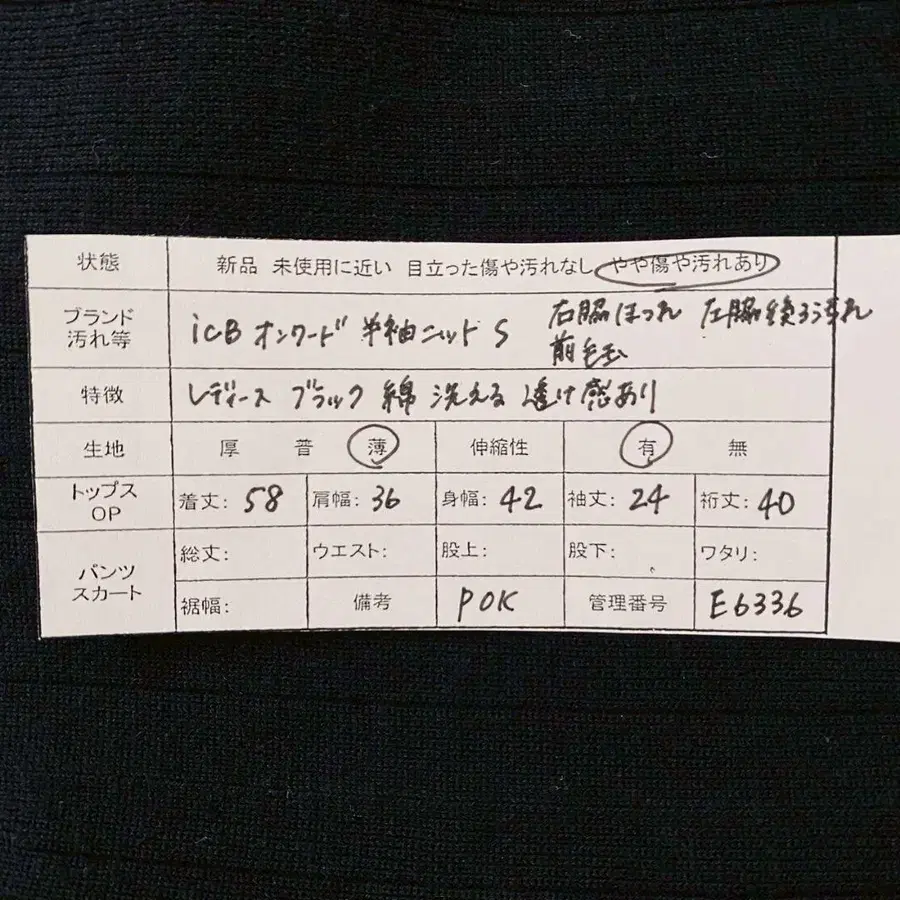 状態 新品 未使用に近い 目立った傷や汚れなし やや傷や汚れあり
ブランド 汚れ等 iCB オンワード 半袖ニット S 右脇ほつれ 左脇後ろ汚れ
前毛玉
特徴 レディース ブラック 綿 洗える 透け感あり
生地 厚 普 薄 伸縮性 有 無
トップス OP 着丈: 58 肩幅: 36 身幅: 42 袖丈: 24 裄丈: 40
パンツ スカート 総丈: ウエスト: 股上: 股下: ワタリ:
裾幅: 備考 POK 管理番号 E6336